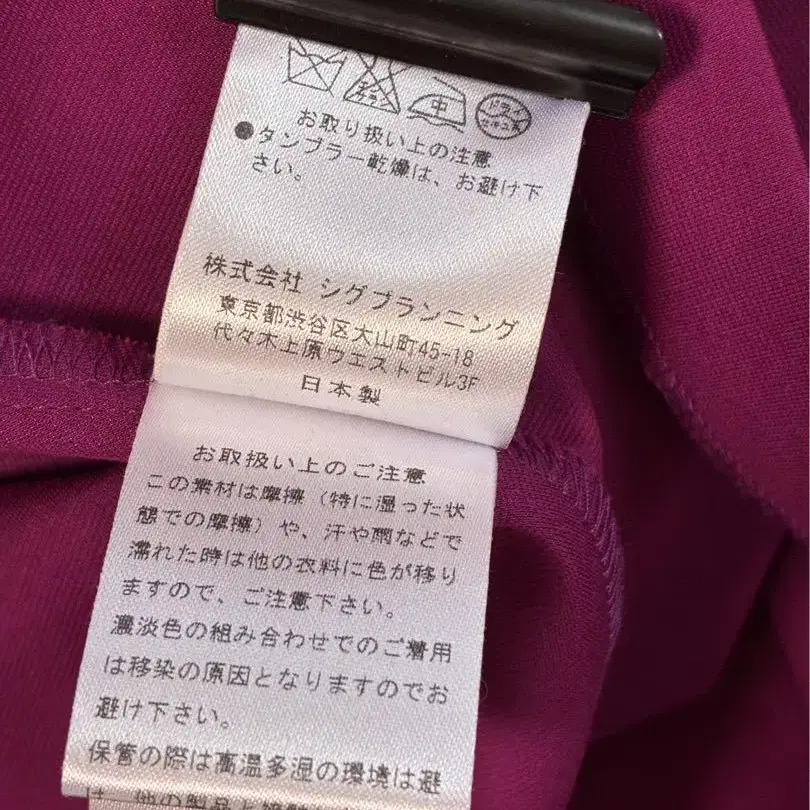 エンソ
サラシ
中
ドライ
セキユ系
お取り扱い上の注意
●タンブラー乾燥は、お避け下
さい。
株式会社 シグプランニング
東京都渋谷区大山町45-18
代々木上原ウエストビル3F
日本製
お取扱い上のご注意
この素材は摩擦（特に湿った状
態での摩擦）や、汗や雨などで
濡れた時は他の衣料に色が移り
ますので、ご注意下さい。
濃淡色の組み合わせでのご着用
は移染の原因となりますのでお
避け下さい。
保管の際は高温多湿の環境は避
け、他の製品と接触